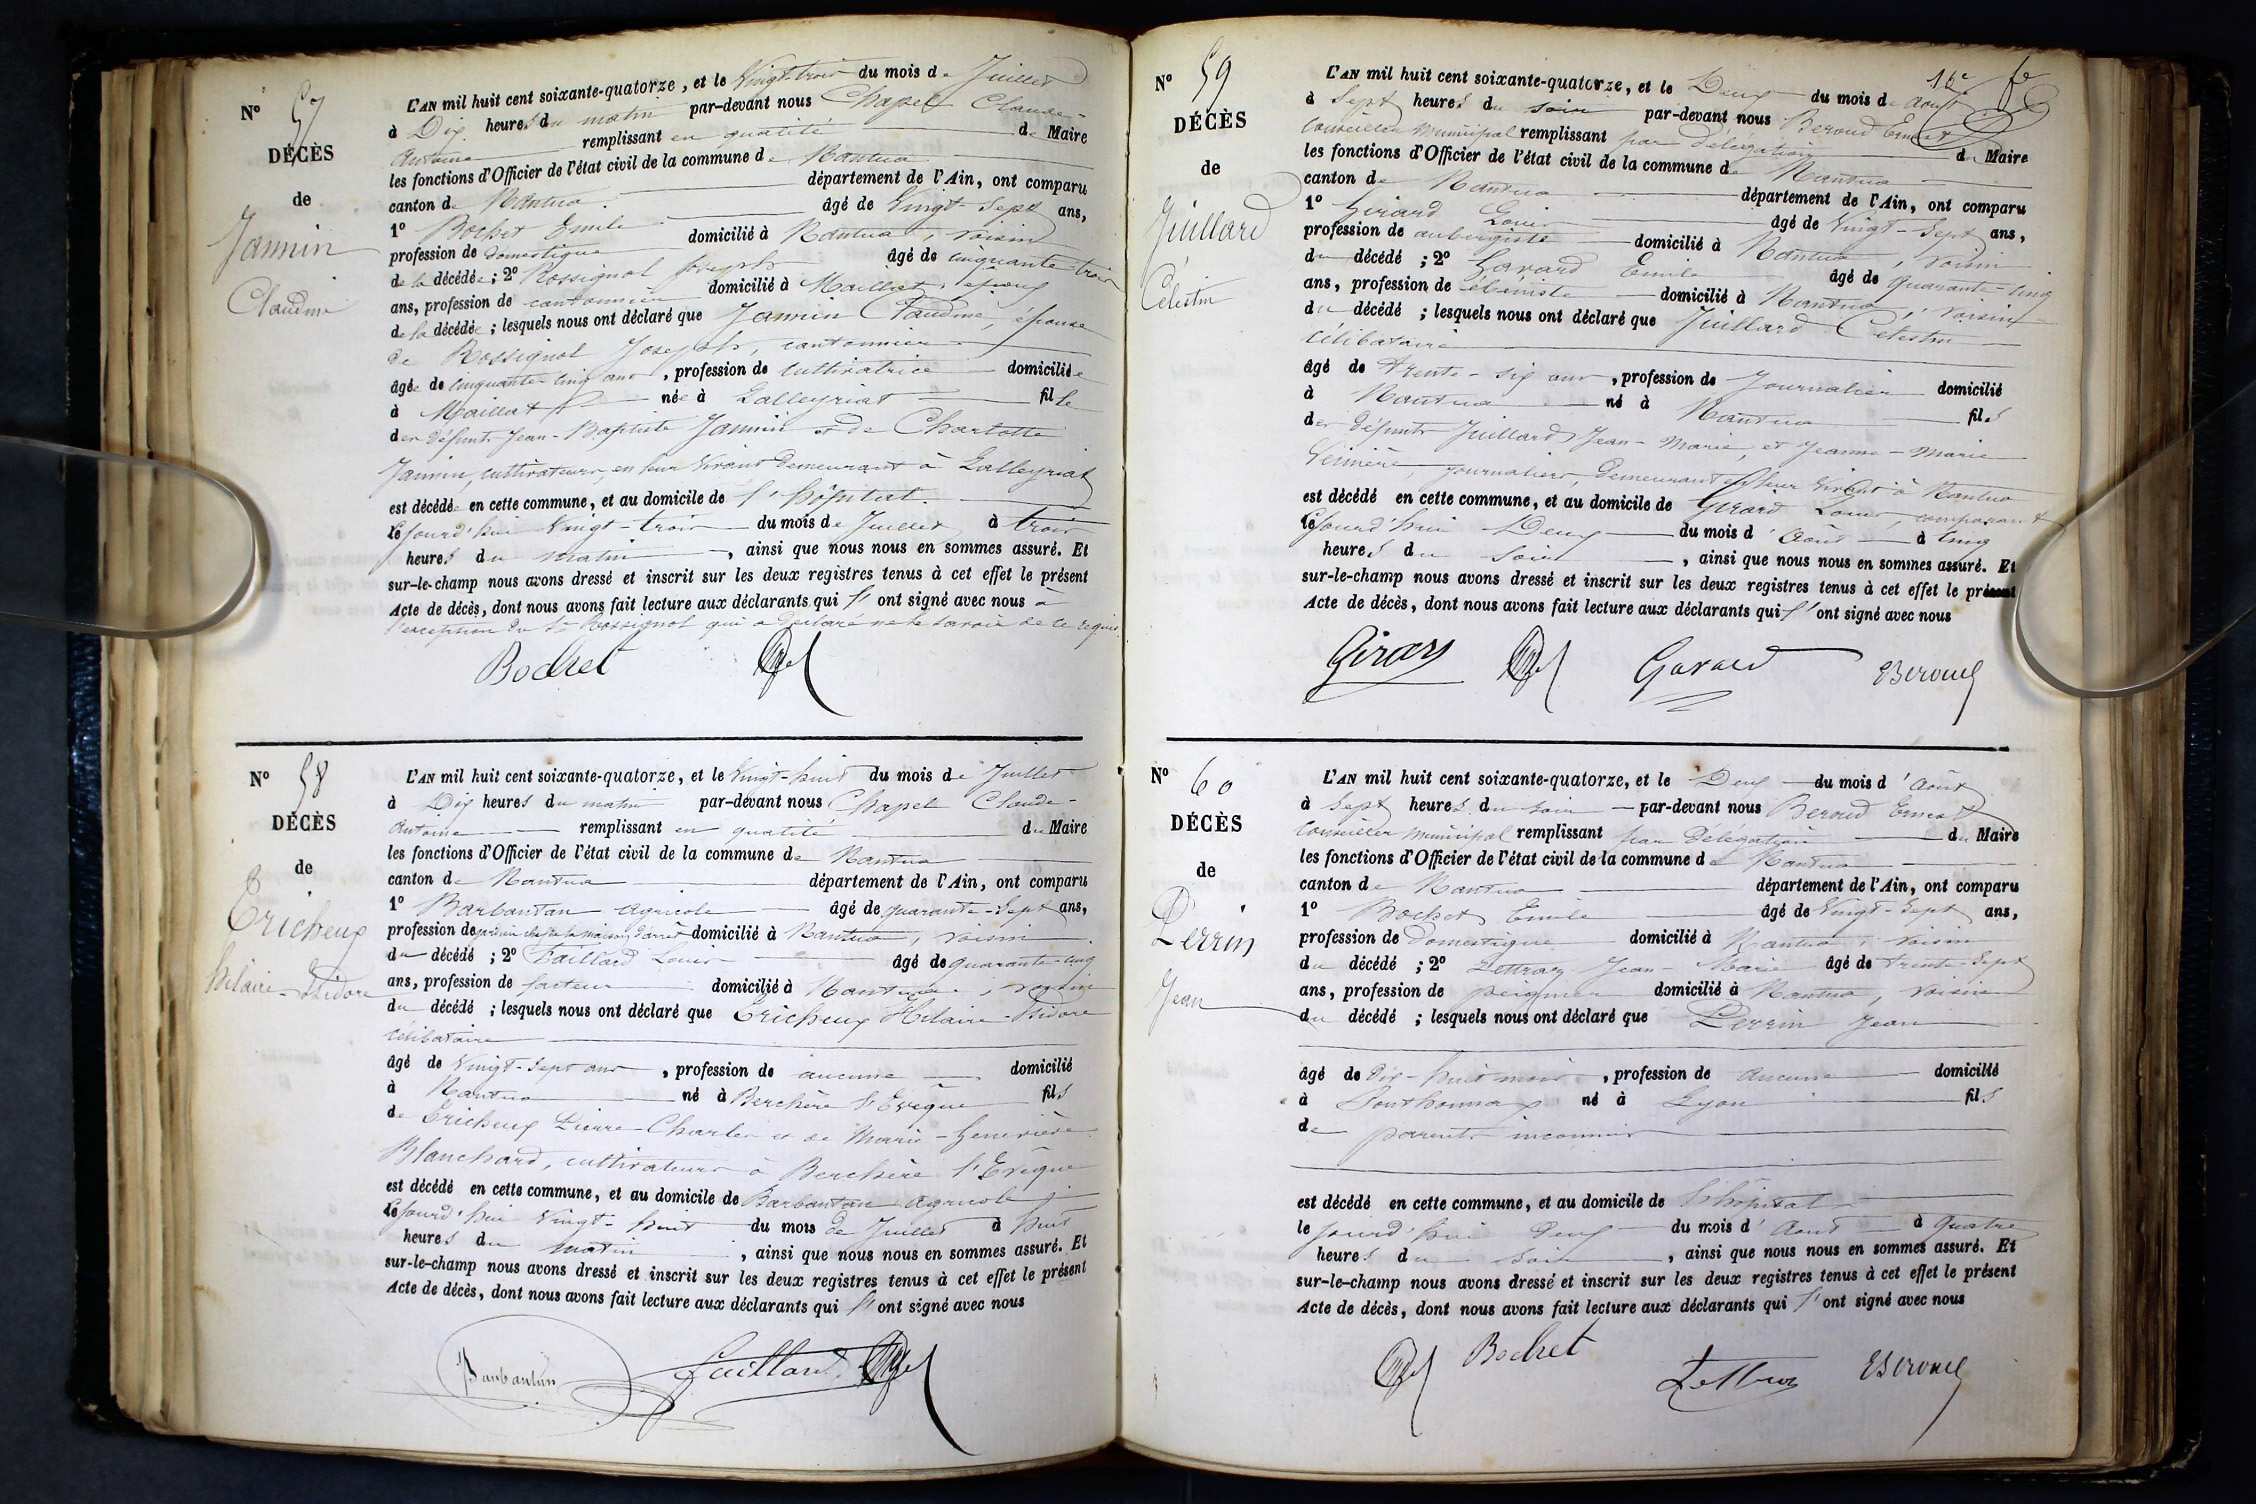 N° 57
DÉCÈS
de
Jannin
Claudine
L'AN mil huit cent soixante-quatorze, et le Vingt-trois du mois de Juillet
à Dix heures du matin par-devant nous Chapel Claude-
Antoine remplissant en qualité de Maire
les fonctions d'Officier de l'état civil de la commune de Nantua
canton de Nantua département de l'Ain, ont comparu
1° Bochet Emile âgé de Vingt-Sept ans,
profession de domestique domicilié à Nantua, voisin
de la décédée; 2° Rossignol Joseph âgé de cinquante-trois
ans, profession de cantonnier domicilié à Maillat, époux
de la décédée; lesquels nous ont déclaré que Jannin Claudine, épouse
de Rossignol Joseph, cantonnier
âgée de cinquante-cinq ans, profession de cultivatrice domiciliée
à Maillat née à Lalleyriat fille
des défunts Jean-Baptiste Jannin et de Charlotte
Jannin, cultivateurs, en leur vivant demeurant à Lalleyriat
est décédée en cette commune, et au domicile de l'hôpital.
le jourd'hui Vingt-trois du mois de Juillet à trois
heures du matin, ainsi que nous nous en sommes assuré. Et
sur-le-champ nous avons dressé et inscrit sur les deux registres tenus à cet effet le présent
Acte de décès, dont nous avons fait lecture aux déclarants qui l'ont signé avec nous à
l'exception du Sr Rossignol qui a déclaré ne le savoir de ce requis.
Bochet
N° 58
DÉCÈS
de
Tricheux
hilaire-Isidore
L'AN mil huit cent soixante-quatorze, et le Vingt-huit du mois de Juillet
à Dix heures du matin par-devant nous Chapel Claude-
Antoine remplissant en qualité du Maire
les fonctions d'Officier de l'état civil de la commune de Nantua
canton de Nantua département de l'Ain, ont comparu
1° Barbantan Agricole âgé de quarante-Sept ans,
profession de gardien chef de la maison d'arrêt domicilié à Nantua, voisin
du décédé; 2° Faillard Louis âgé de quarante-cinq
ans, profession de facteur domicilié à Nantua, voisin
du décédé; lesquels nous ont déclaré que Tricheux Hilaire-Isidore
célibataire
âgé de Vingt-Sept ans, profession de aucune domicilié
à Nantua né à Berchère l'Evêque fils
de Tricheux Pierre-Charles et de Marie-Geneviève
Blanchard, cultivateurs à Berchère l'Evêque
est décédé en cette commune, et au domicile de Barbantan Agricole
le jourd'hui Vingt-huit du mois de Juillet à huit
heures du matin, ainsi que nous nous en sommes assuré. Et
sur-le-champ nous avons dressé et inscrit sur les deux registres tenus à cet effet le présent
Acte de décès, dont nous avons fait lecture aux déclarants qui l'ont signé avec nous
Barbantan
N° 59
DÉCÈS
de
Juillard
Célestin
16e fe
L'AN mil huit cent soixante-quatorze, et le Deux du mois de Août
à Sept heures du soir par-devant nous Beroud Ernest
Conseiller Municipal remplissant par délégation du Maire
les fonctions d'Officier de l'état civil de la commune de Nantua
canton de Nantua département de l'Ain, ont comparu
1° Girard Louis âgé de Vingt-Sept ans,
profession de aubergiste domicilié à Nantua, voisin
du décédé; 2° Gavard Emile âgé de quarante-cinq
ans, profession de ébéniste domicilié à Nantua, voisin
du décédé; lesquels nous ont déclaré que Juillard Célestin
célibataire
âgé de trente-six ans, profession de Journalier domicilié
à Nantua né à Nantua fils
des défunts Juillard Jean-Marie, et Jeanne-Marie
journaliers, demeurant en leur vivant à Nantua
est décédé en cette commune, et au domicile de Girard Louis, comparant
le jourd'hui Deux du mois d'Août à cinq
heures du soir, ainsi que nous nous en sommes assuré. Et
sur-le-champ nous avons dressé et inscrit sur les deux registres tenus à cet effet le présent
Acte de décès, dont nous avons fait lecture aux déclarants qui l'ont signé avec nous
Girard Gavard EBeroud
N° 60
DÉCÈS
de
Perrin
Jean
L'AN mil huit cent soixante-quatorze, et le Deux du mois d'Août
à Sept heures du soir par-devant nous Beroud Ernest
Conseiller municipal remplissant par Délégation du Maire
les fonctions d'Officier de l'état civil de la commune de Nantua
canton de Nantua département de l'Ain, ont comparu
1° Bochet Emile âgé de Vingt-Sept ans,
profession de Domestique domicilié à Nantua, voisin
du décédé; 2° Lettraz Jean-Marie âgé de trente-Sept
ans, profession de peigneur domicilié à Nantua, voisin
du décédé; lesquels nous ont déclaré que Perrin Jean
âgé de dix-huit mois, profession de Aucune domicilié
à Ponthonnax né à Lyon fils
de parents inconnus
est décédé en cette commune, et au domicile de l'hôpital
le jourd'hui Deux du mois d'Août à quatre
heures du soir, ainsi que nous nous en sommes assuré. Et
sur-le-champ nous avons dressé et inscrit sur les deux registres tenus à cet effet le présent
Acte de décès, dont nous avons fait lecture aux déclarants qui l'ont signé avec nous
Bochet Lettraz EBeroud